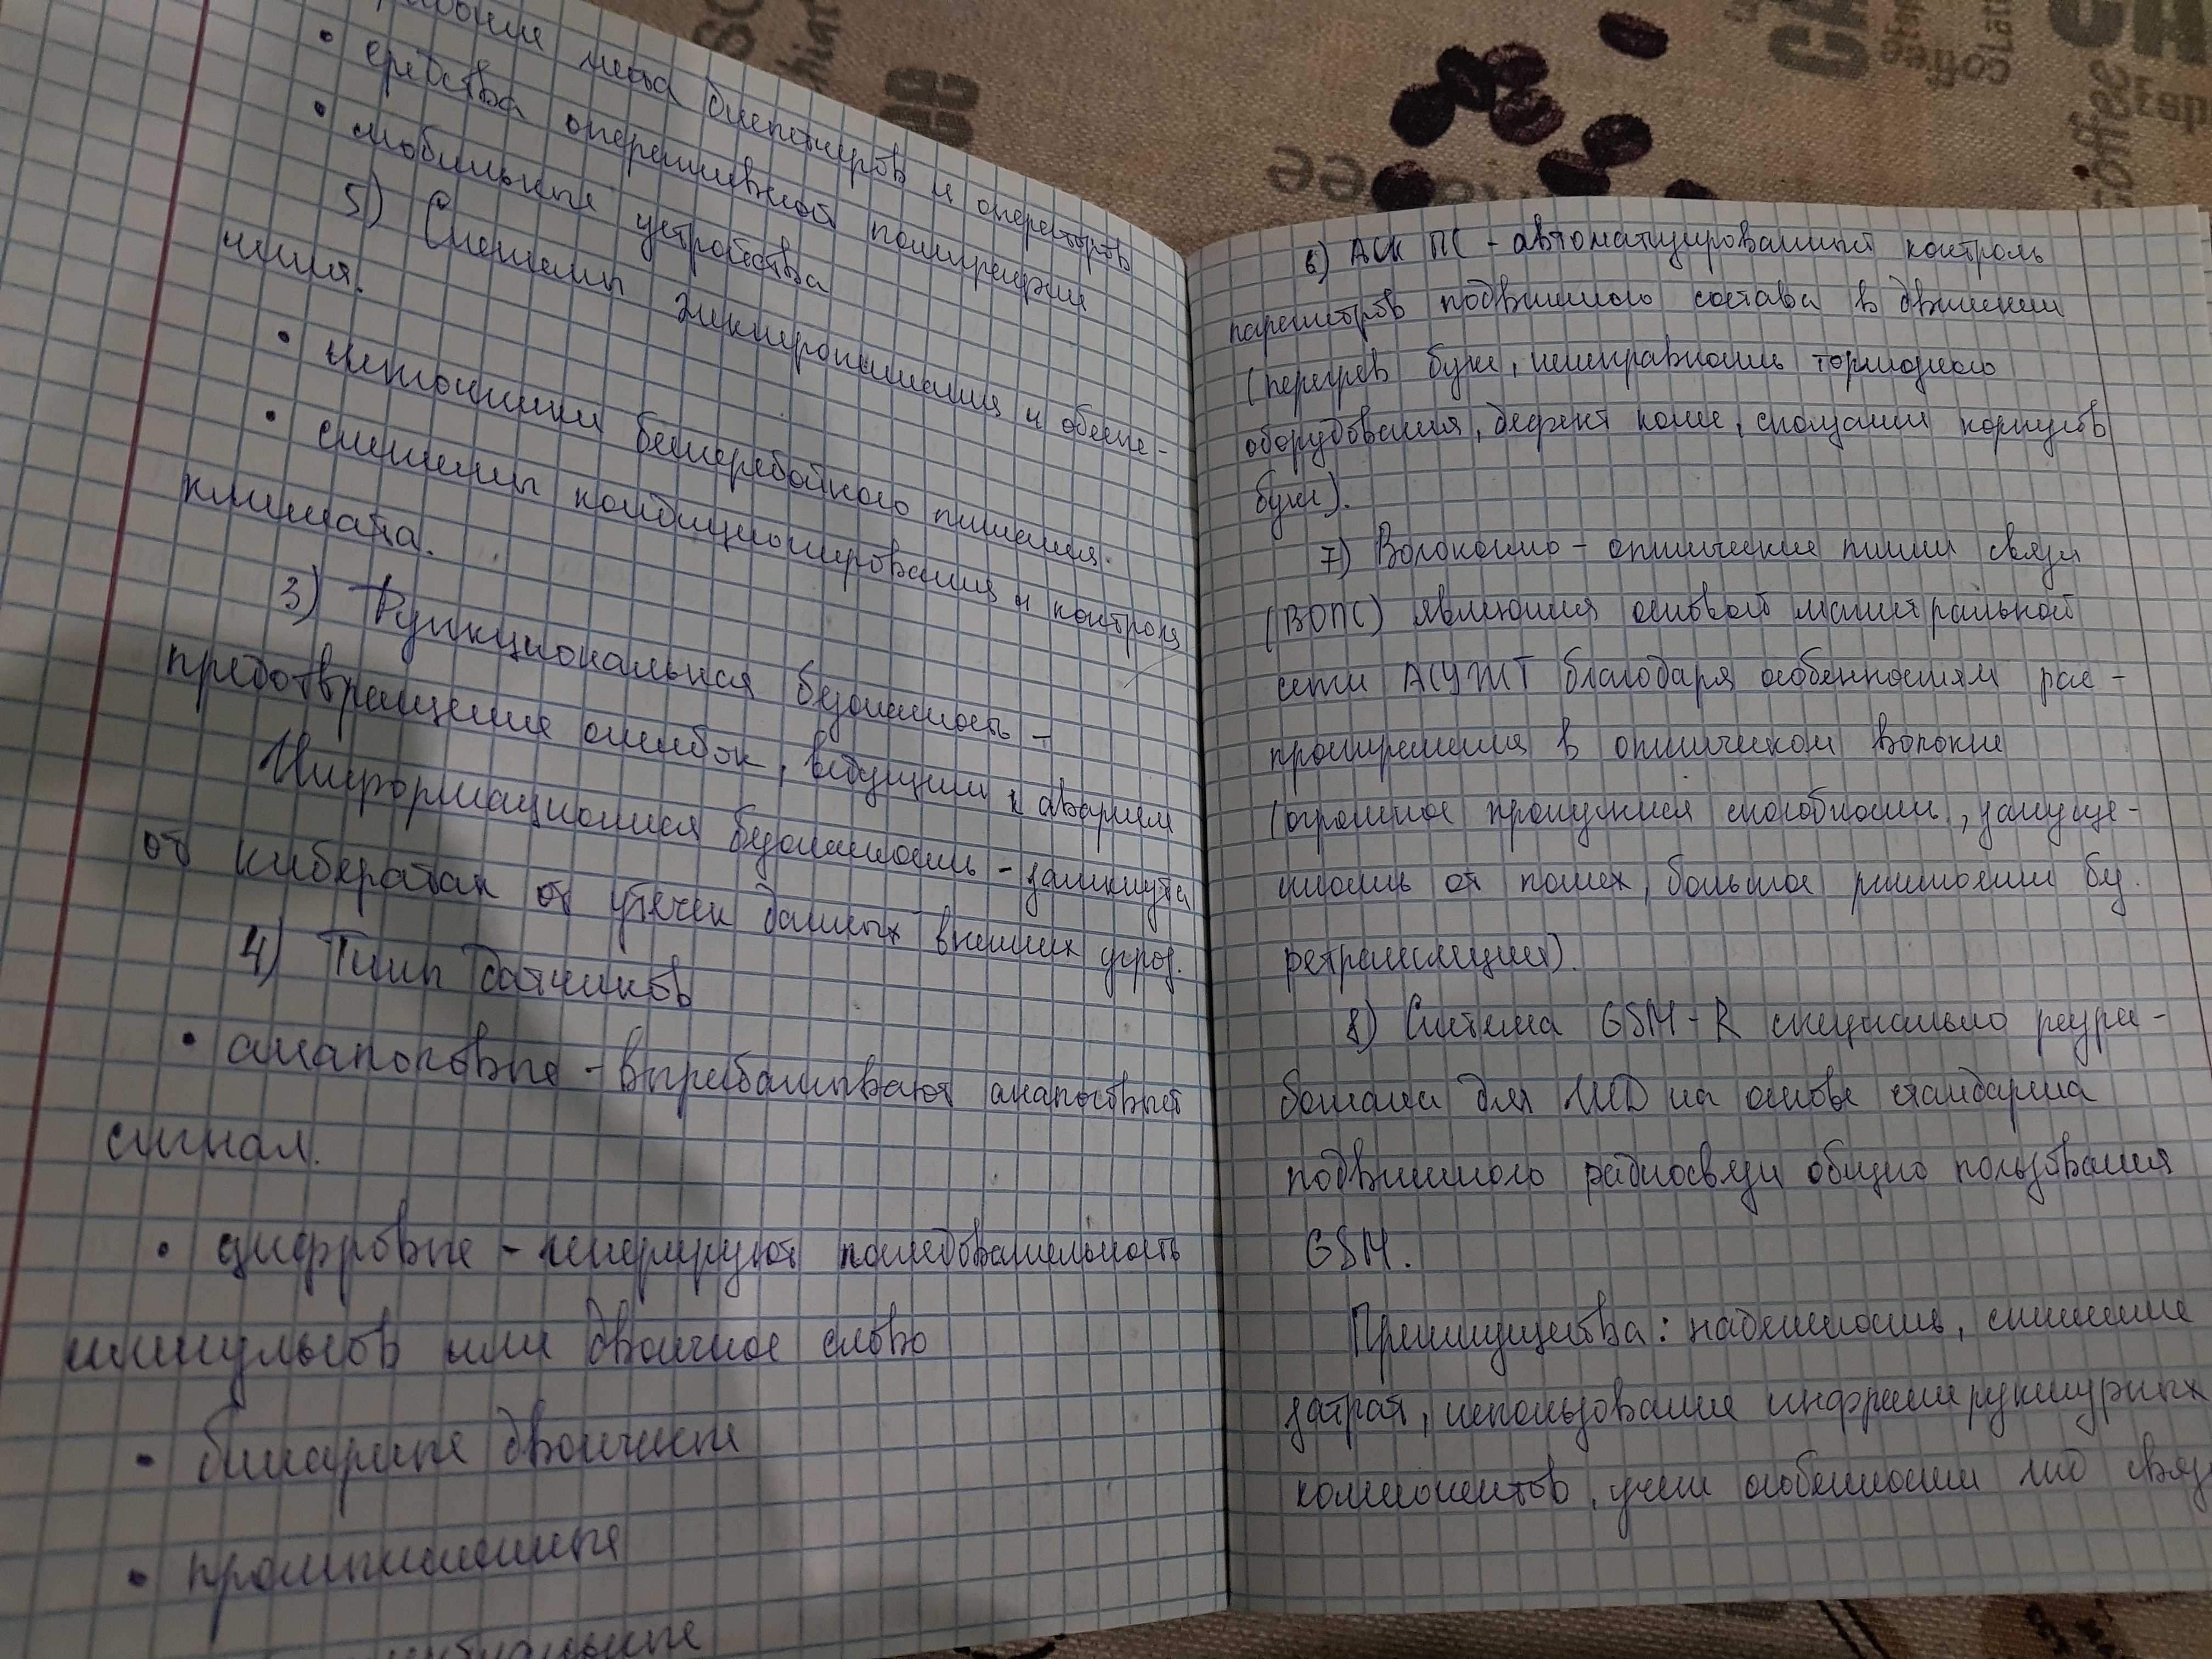 рабочие места диспетчеров и операторов
• средства оперативной полиграфии
• мобильные устройства
5) Системы электропитания и обеспе-
чения.
• источники бесперебойного питания.
• системы кондиционирования и контроля
климата.
3) Функциональная безопасность -
предотвращение ошибок, ведущим к авариям
Информационная безопасность -
от кибератак от утечек данных внешних угроз.
4) Типы датчиков
• аналоговые - вырабатывают аналоговый
сигнал.
• цифровые - генерируют последовательность
импульсов или двоичное слово
• бинарные двоичные
• промышленные
6) АСК ПС - автоматизированный контроль
параметров подвижного состава в движении
(перегрев букс, неисправность тормозного
оборудования, дефект колес, сползании корпусов
букс).
7) Волоконно - оптические линии связи
(ВОЛС) являются основой магистральной
сети АСУЖТ благодаря особенностям рас-
пространения в оптическом волокне
(огромная пропускная способность, защище-
нность от помех, большое расстояние бу.
ретрансляции).
8) Система GSM-R специально разра-
ботана для ЖД на основе стандарта
подвижного радиосвязи общего пользования
GSM.
Преимущества: надежность, снижение
затрат, использование инфраструктурных
компонентов, учет особенности жд связи